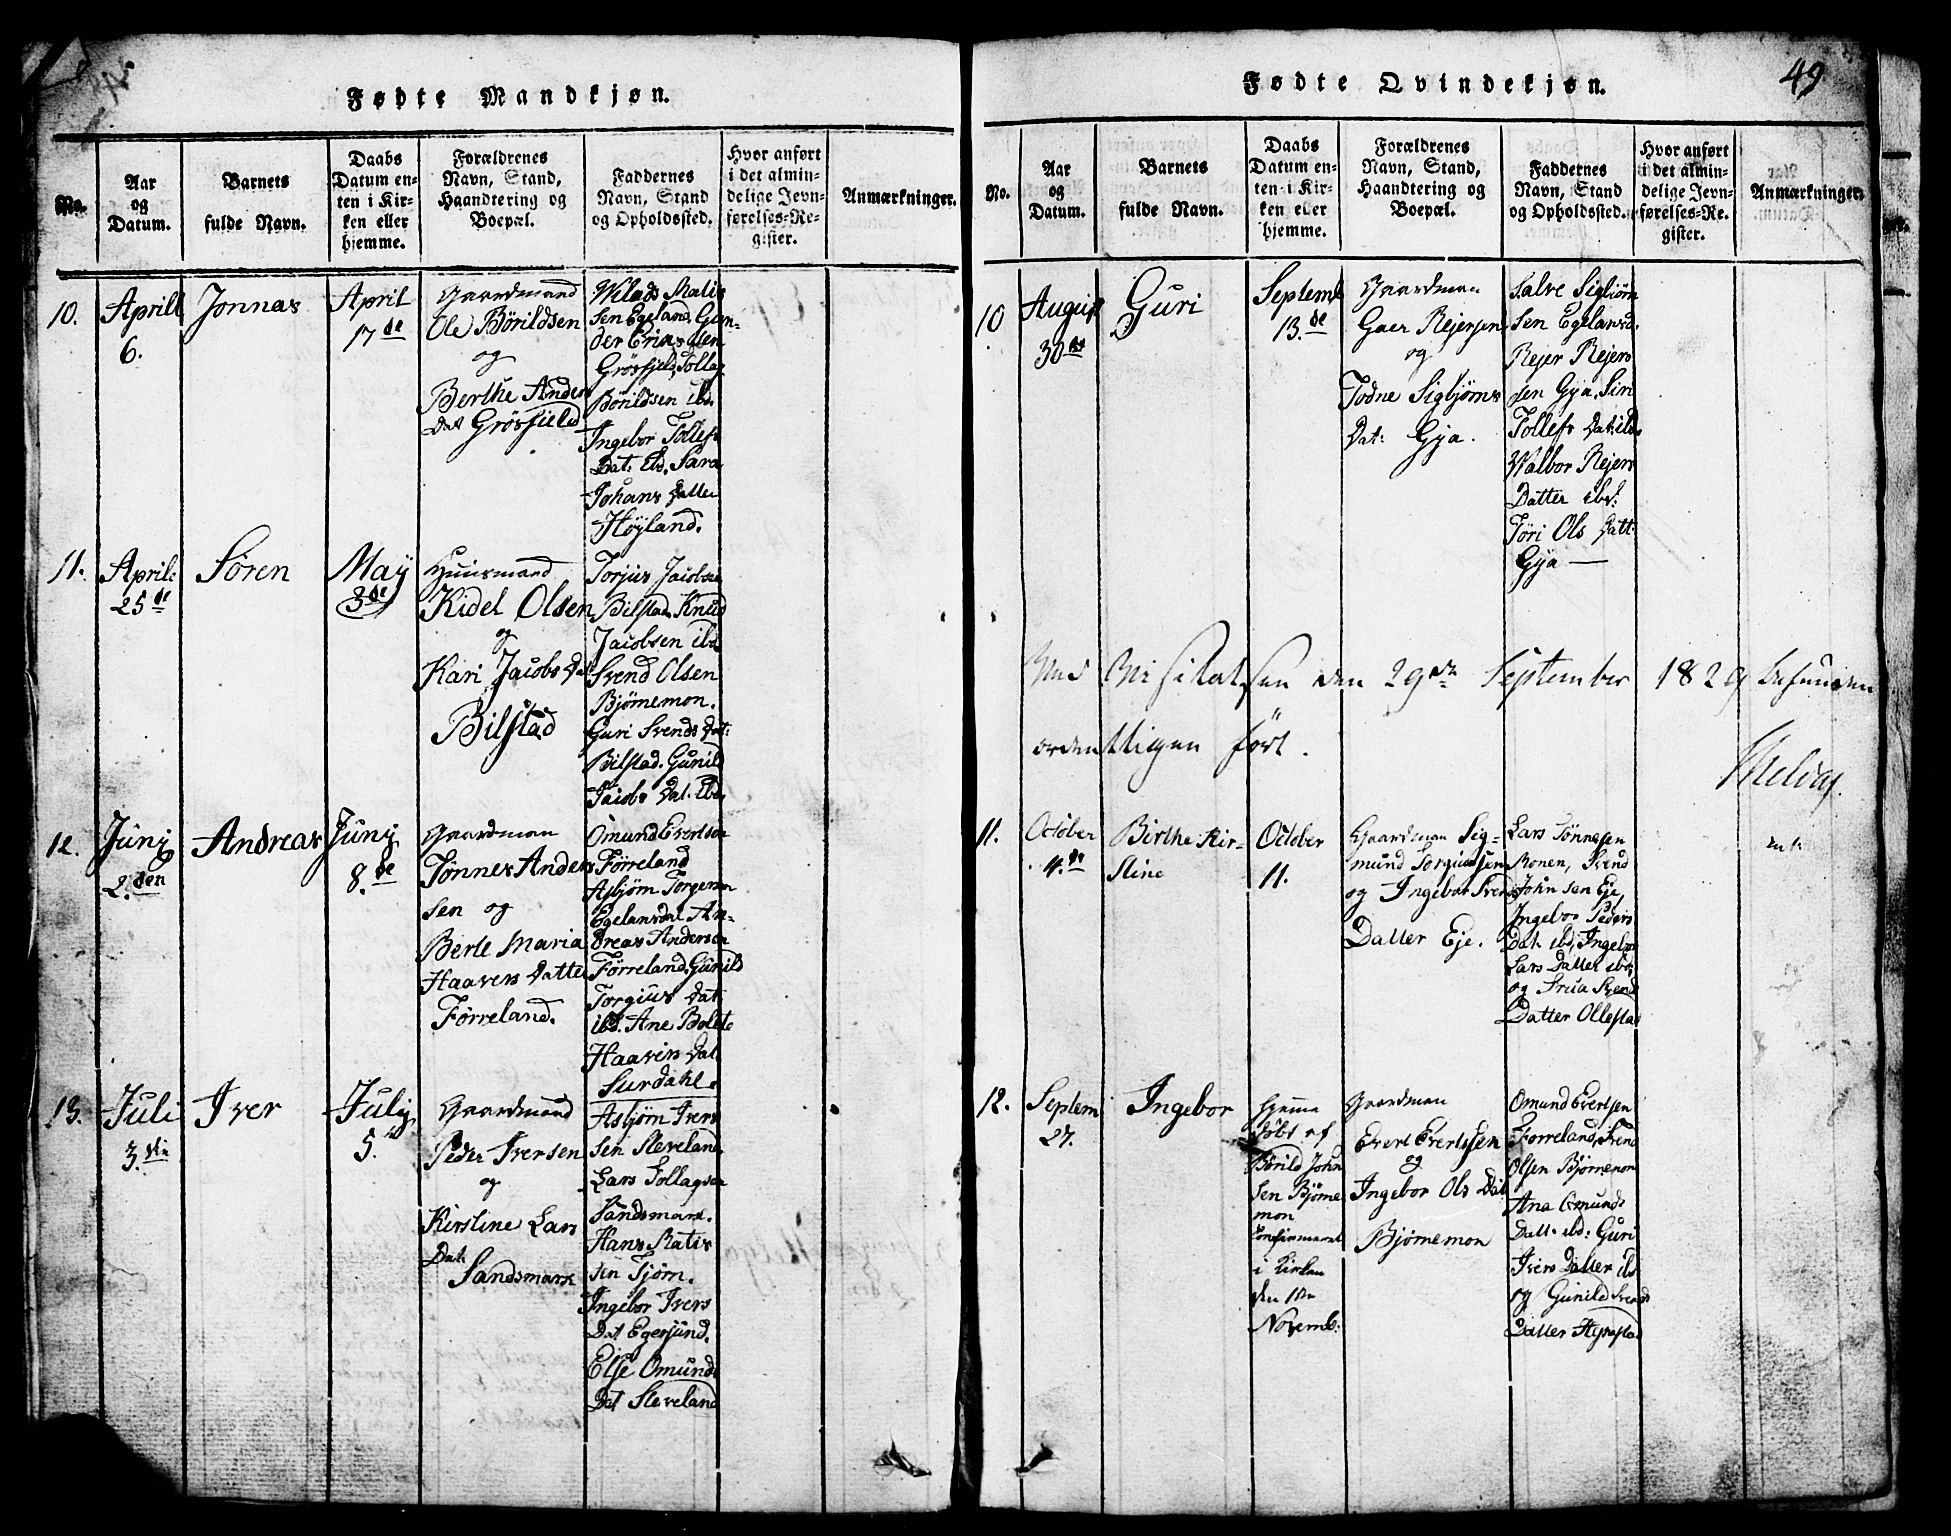 Fødte Mandkjøn.
No.
Aar
og
Datum.
Barnets
fulde Navn.
Daabs
Datum en-
ten i Kir-
ken eller
hjemme.
Forældrenes
Navn, Stand,
Haandtering og
Boepæl.
Faddernes
Navn, Stand
og Opholdssted.
Hvor anført
i det almin-
delige Jevn-
førelses-Re-
gister.
Anmærkninger.
10.
Aprill
6.
Jonnas
April
17de
Gaardmand
Ole Börildsen
og
Berthe Anders
Dat Grösfield
Wilads Matis
sen Egeland. Gun-
der Eriksen
Grösfjeld, Tollag
Börildsen ibd.
Ingebor Tollefs
Dat. ibd. Sara
Johans Datter
Höyland.
11.
Aprile
25de
Sören
May
3de
Huusmand
Kidel Olsen
og
Kari Jacobs Dat
Bilstad
Torjus Jacobsen
Bilstad. Knud
Jacobsen ibd.
Svend Olsen
Bjørnemon.
Guri Svends Dat:
Bilstad. Gunild
Jacobs Dat. ibd.
12.
Junÿ
2den
Andreas
Junÿ
8.de
Gaardman
Tønnes Anders
sen og
Berte Maria
Haavers Datter
Førreland.
Omund Evertsen
Førreland
Asbjørn Torgersen
Egelansdal An-
dreas Andersen
Førreland. Gunild
Torgius Dat
ibd. Ane Bolete
Haavers Dat.
Surdahl.
13.
Juli
3die
Iver
July
5.
Gaardmand
Peder Iversen
og
Kirstine Lars
Dat.
Sandsmark
Asbjørn Ivers
sen Sleveland
Lars Tollagsen
Sandsmark.
Hans Matis
sen Tjørn.
Ingebor Ivers
Dat Egersund.
Else Omunds
Dat Sleveland
Fødte Qvindekjøn.
49
No.
Aar
og
Datum.
Barnets
fulde Navn.
Daabs
Datum en-
ten i Kir-
ken eller
hjemme.
Forældrenes
Navn, Stand,
Haandtering og
Boepæl.
Faddernes
Navn, Stand
og Opholdssted.
Hvor anført
i det almin-
delige Jevn-
førelses-Re-
gister.
Anmærkninger.
10
August
30te
Guri
Septemb
13.de
Gaardman
Gaer Rejersen
og
Todne Sigbjørns
Dat: Gya.
Salve Sigbiørn
sen Egelansd.
Rejer Rejers
sen Gya, Siri
Tollefs Dat: ibd.
Walbor Rejers
Datter ibd:
Töri Ols Datt:
Gya —
Ved Visitatsen den 29de September 1829 befunden
ordentligen ført.
11.
October
4.de
Birthe Kir-
stine
October
11.
Gaardman Sig-
mund Torgiussen
og Ingebor Svends
Datter Eje.
Lars Tönnesen
Monen, Svend
John sen Eje,
Ingebor Peders
Dat. ibd, Ingebor
Lars Datter ibd,
og Svend
Datter Ollestad
12.
Septem
27.
Ingebor
Hjemme
døbt af
Börild John
sen Bjørne
mon
Confirmeret
i Kirken
den 1ste
Novemb:
Gaardman
Evert Evertssen
og
Ingebor Ols Dat
Bjørnemon
Omund Evertsen
Førreland, Svend
Olsen Bjørnemon
Ana Omunds
Datt. ibd: Guri
Ivers Datter ibd
og Gunild Svends
Datter